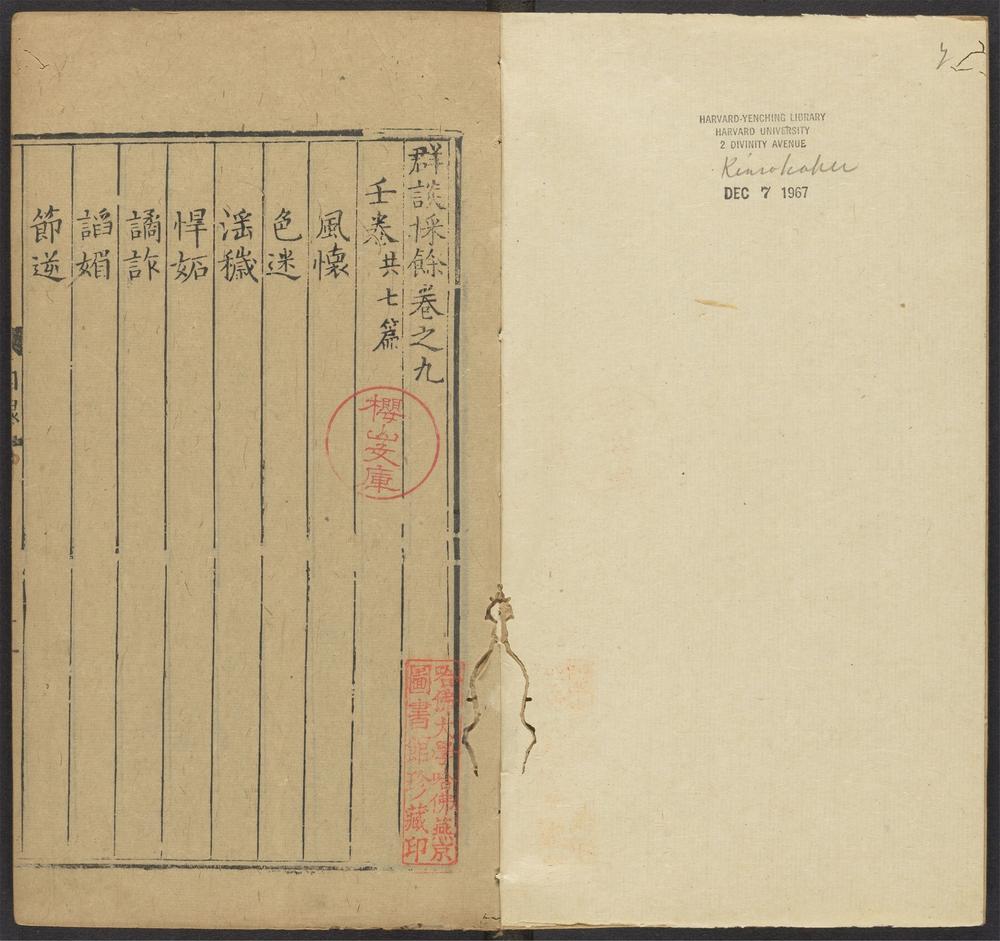 HARVARD-YENCHING LIBRARY
HARVARD UNIVERSITY
2 DIVINITY AVENUE
Kinokuniya
DEC 7 1967
群談採餘卷之九
壬卷共七篇
風懷
色迷
滛穢
悍妬
譎詐
謟媚
節逆
櫻山文庫
哈佛大學哈佛燕京
圖書館珍藏印